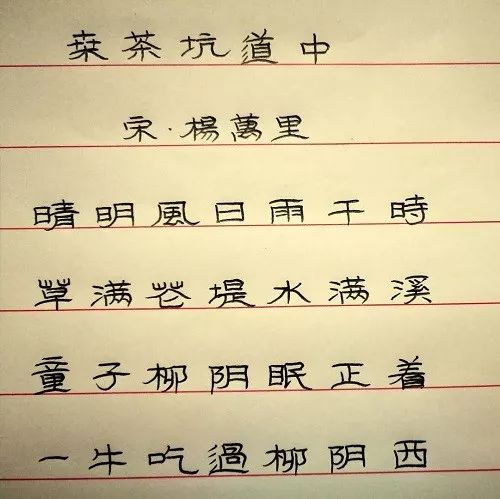 桒茶坑道中
宋·楊萬里
晴明風日雨干時
草满花堤水满溪
童子柳阴眠正着
一牛吃過柳阴西